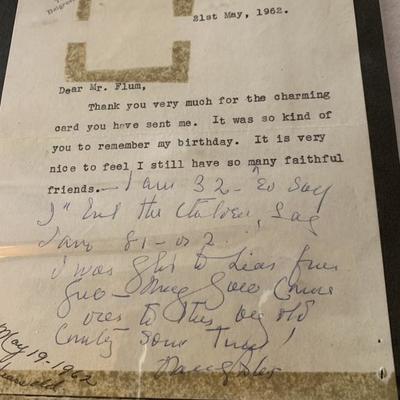 Belgrav
21st May, 1962.
Dear Mr. Flum,
Thank you very much for the charming
card you have sent me. It was so kind of
you to remember my birthday. It is very
nice to feel I still have so many faithful
friends.— I am 82 - "to say
I" and the
I am 81 - or 2
I was glad to hear from
you — May you come
over to this old
country some time!
May 19-1962